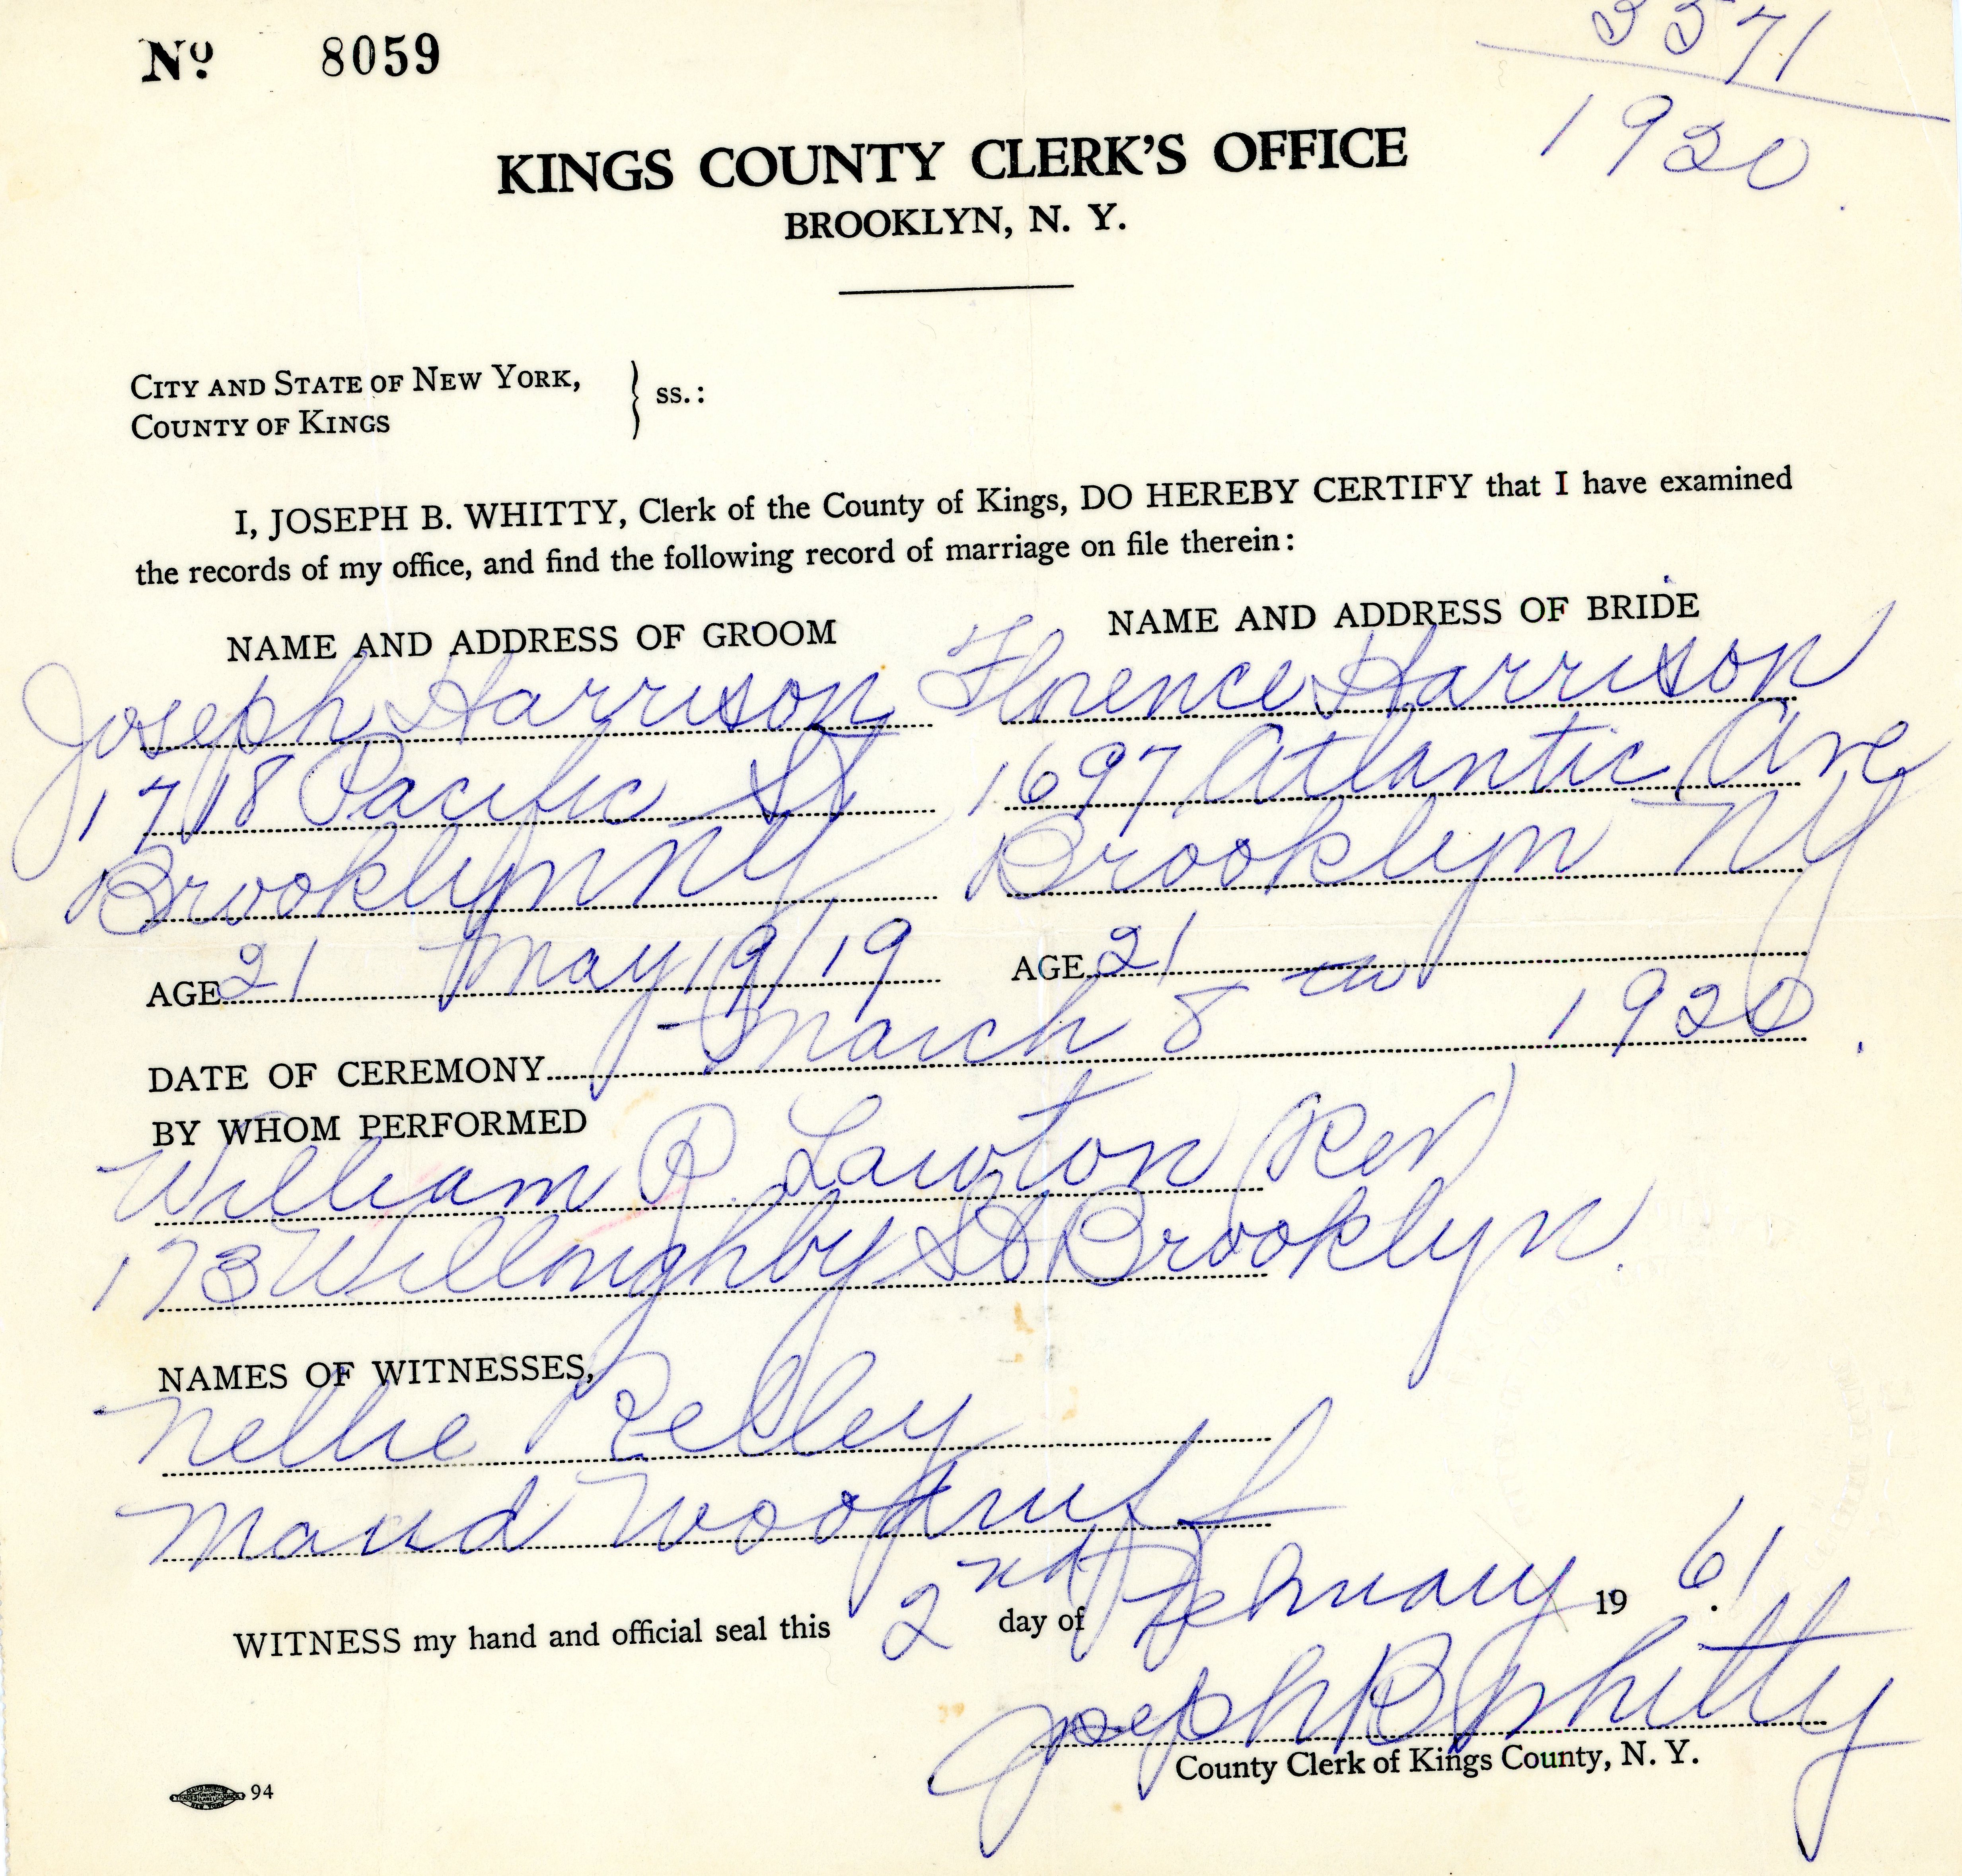 No. 8059
3571
1920
KINGS COUNTY CLERK'S OFFICE
BROOKLYN, N. Y.
CITY AND STATE OF NEW YORK,
COUNTY OF KINGS
} ss.:
I, JOSEPH B. WHITTY, Clerk of the County of Kings, DO HEREBY CERTIFY that I have examined
the records of my office, and find the following record of marriage on file therein:
NAME AND ADDRESS OF GROOM
Joseph Harrison
1718 Pacific St
Brooklyn NY
AGE 21 May 19/19
NAME AND ADDRESS OF BRIDE
Florence Harrison
1697 Atlantic Ave
Brooklyn NY
AGE 21
DATE OF CEREMONY March 8 1920
BY WHOM PERFORMED
William P. Lawton Rev
173 Willoughby St Brooklyn.
NAMES OF WITNESSES,
Nellie Kelley
Maud Woodruff
WITNESS my hand and official seal this 2nd day of February 1961
Joseph B Whitty
County Clerk of Kings County, N. Y.
94